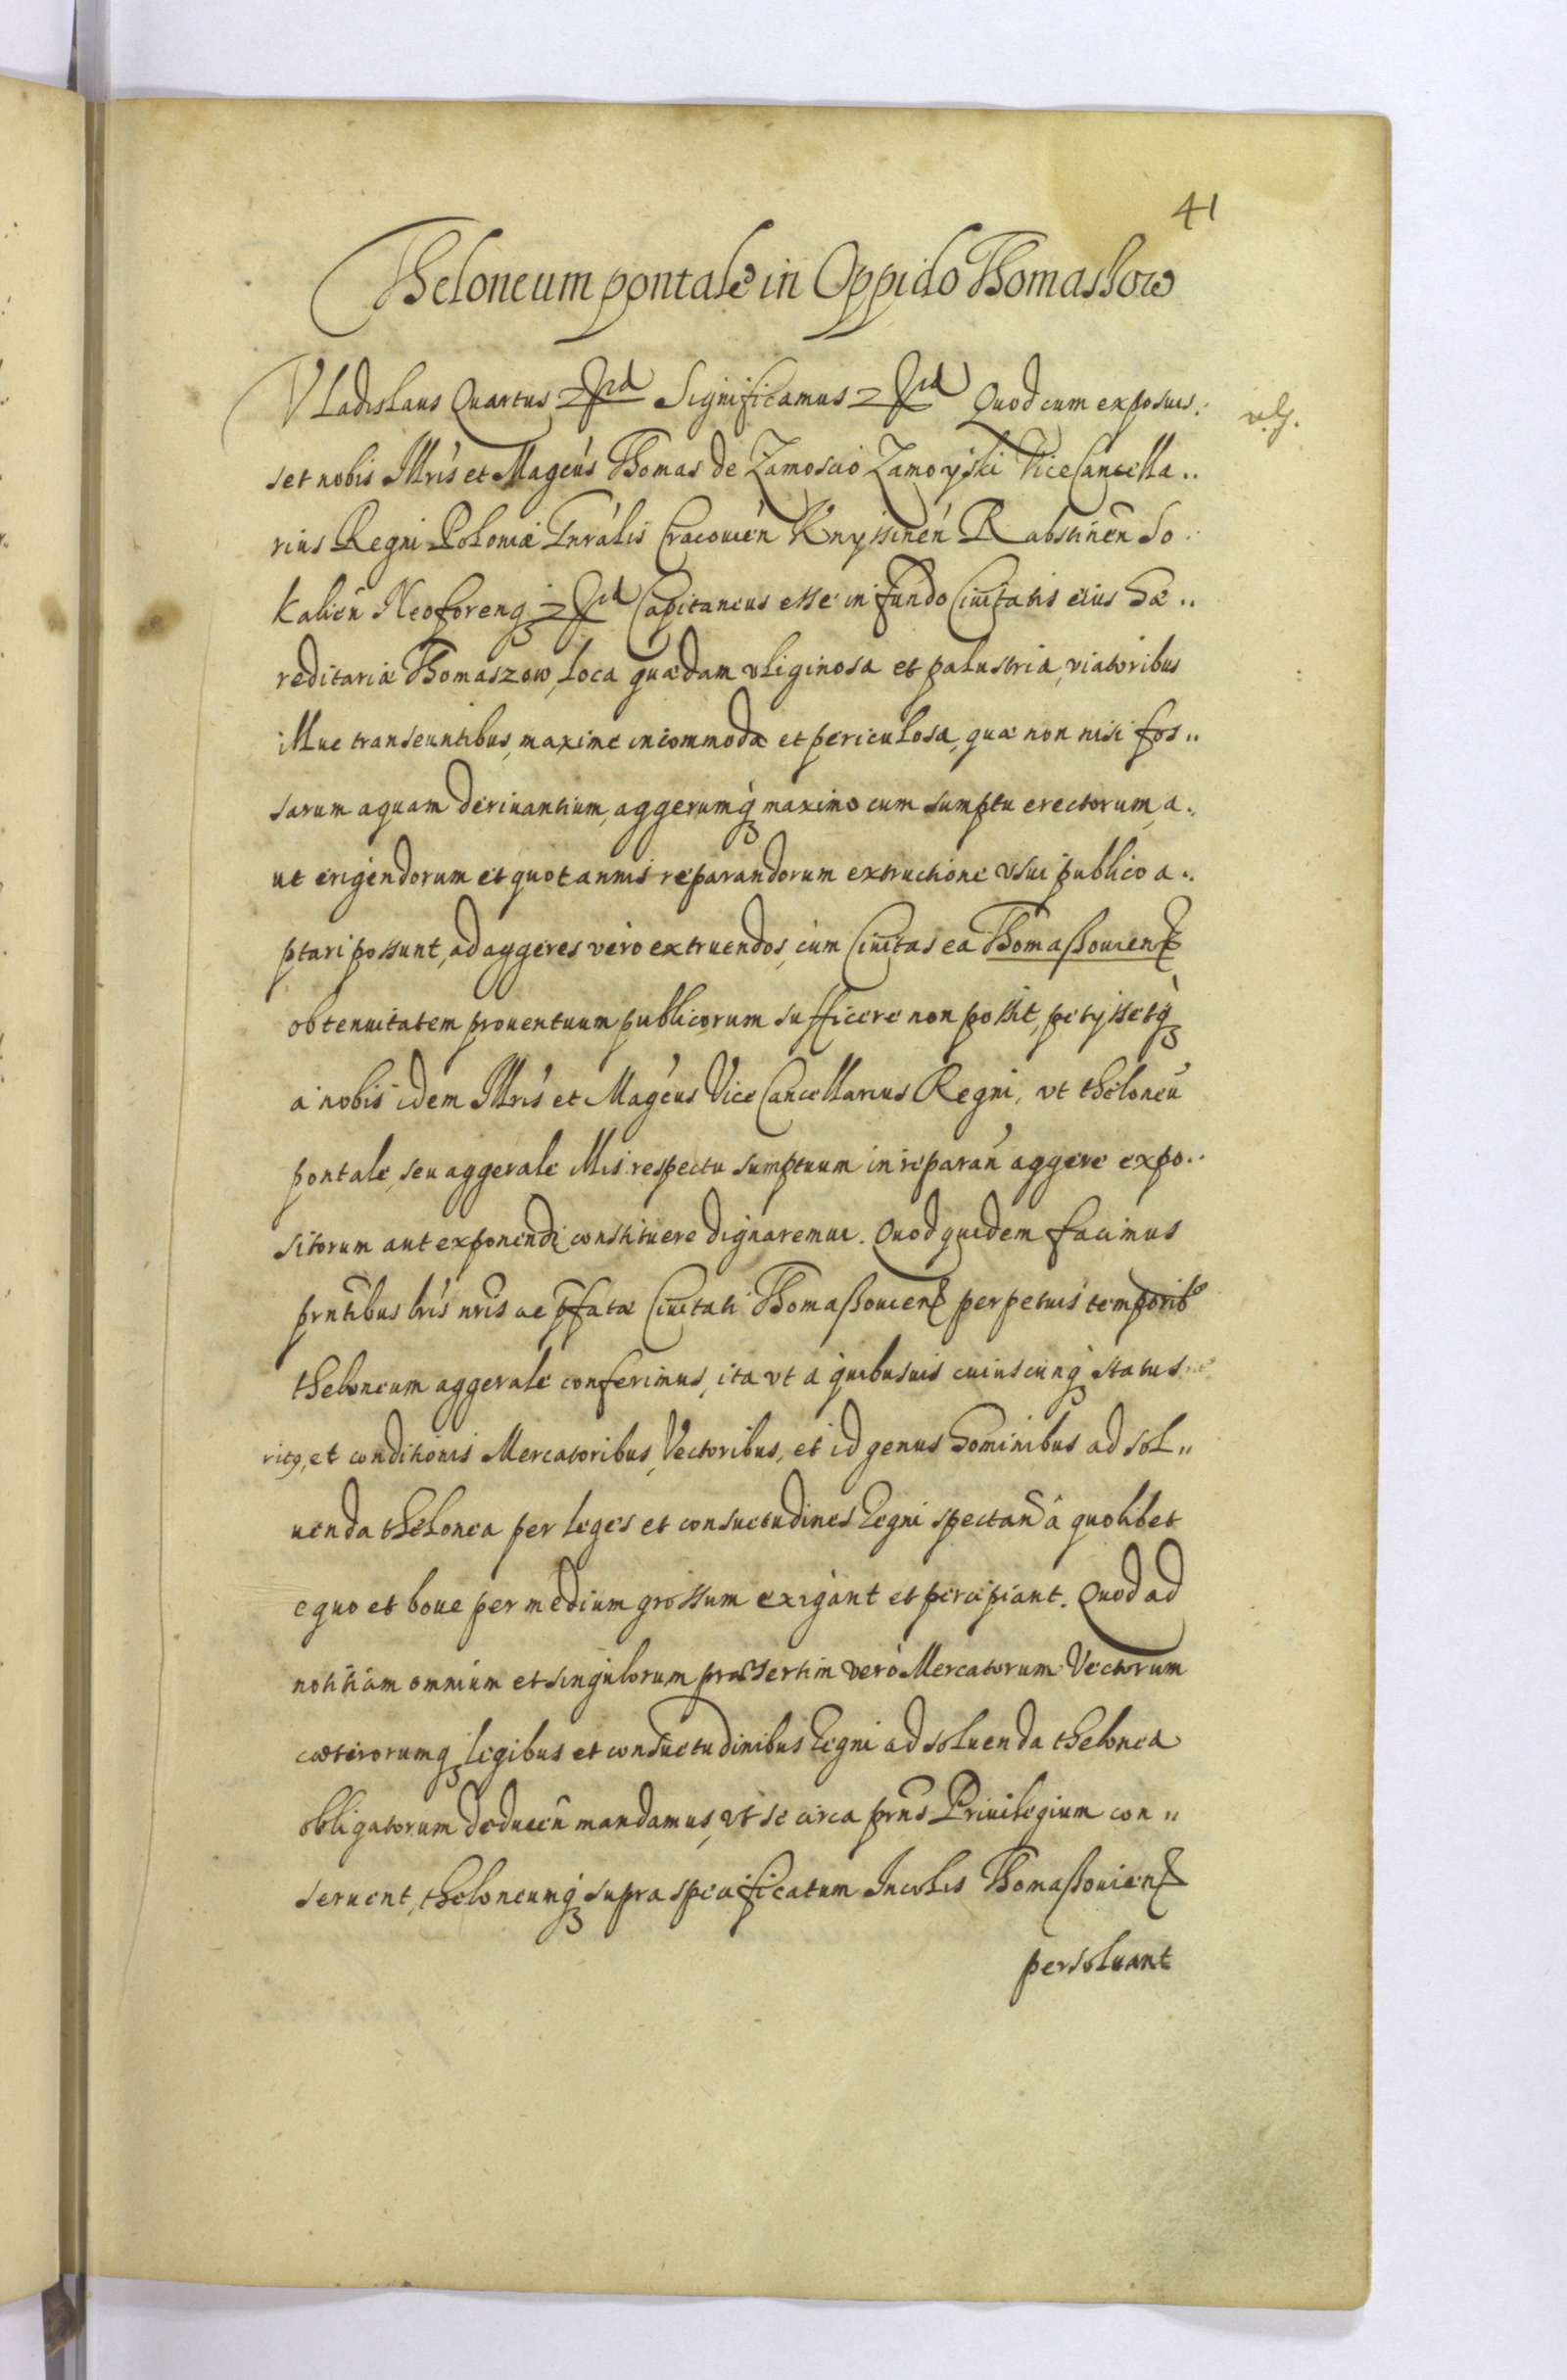 41
Theloneum pontale in Oppido Thomaszow
Vladislaus Quartus Significamus Quod cum exposuis..
set nobis Illris et Magcus Thomas de Zamoscio Zamoyski Vice Cancella..
rius Regni Poloniæ Gnralis Cracouien Knyssinen Rabstinen So..
kalien Neoforeng Capitaneus esse in fundo Ciuitatis eius hæ..
reditariæ Thomaszow, loca quædam vliginosa et palustria, viatoribus
illuc transeuntibus, maxime incommoda et periculosa, quæ non nisi fos..
sarum aquam deriuantium, aggerumq maximo cum sumptu erectorum, a..
ut erigendorum et quotannis reparandorum extructione vsui publico a..
ptari possunt, ad aggeres vero extruendos, cum Ciuitas ea Thomaßouien
ob tenuitatem prouentuum publicorum sufficere non possit, petyssetq
a nobis idem Illris et Magcus Vice Cancellarius Regni, vt theloneu
pontale, seu aggerale illis respectu sumptuum in reparan aggere expo..
sitorum aut exponendi constituere dignaremur. Quod quidem facimus
prntibus lris nris ac pfatæ Ciuitati Thomaßouien perpetuis temporib
theloneum aggerale conferimus, ita vt a quibusuis cuiuscunq status
et conditionis Mercatoribus, Vectoribus, et id genus hominibus ad sol..
uenda thelonea per leges et consuetudines Regni spectan a quolibet
equo et boue per medium grossum exigant et percipiant. Quod ad
notitiam omnium et singulorum præsertim vero Mercatorum Vectorum
cæterorumq legibus et consuetudinibus Regni ad soluenda thelonea
obligatorum deducen mandamus, vt se circa prns Priuilegium con..
seruent, theloneumq supra specificatum Incolis Thomaßouien
persoluant